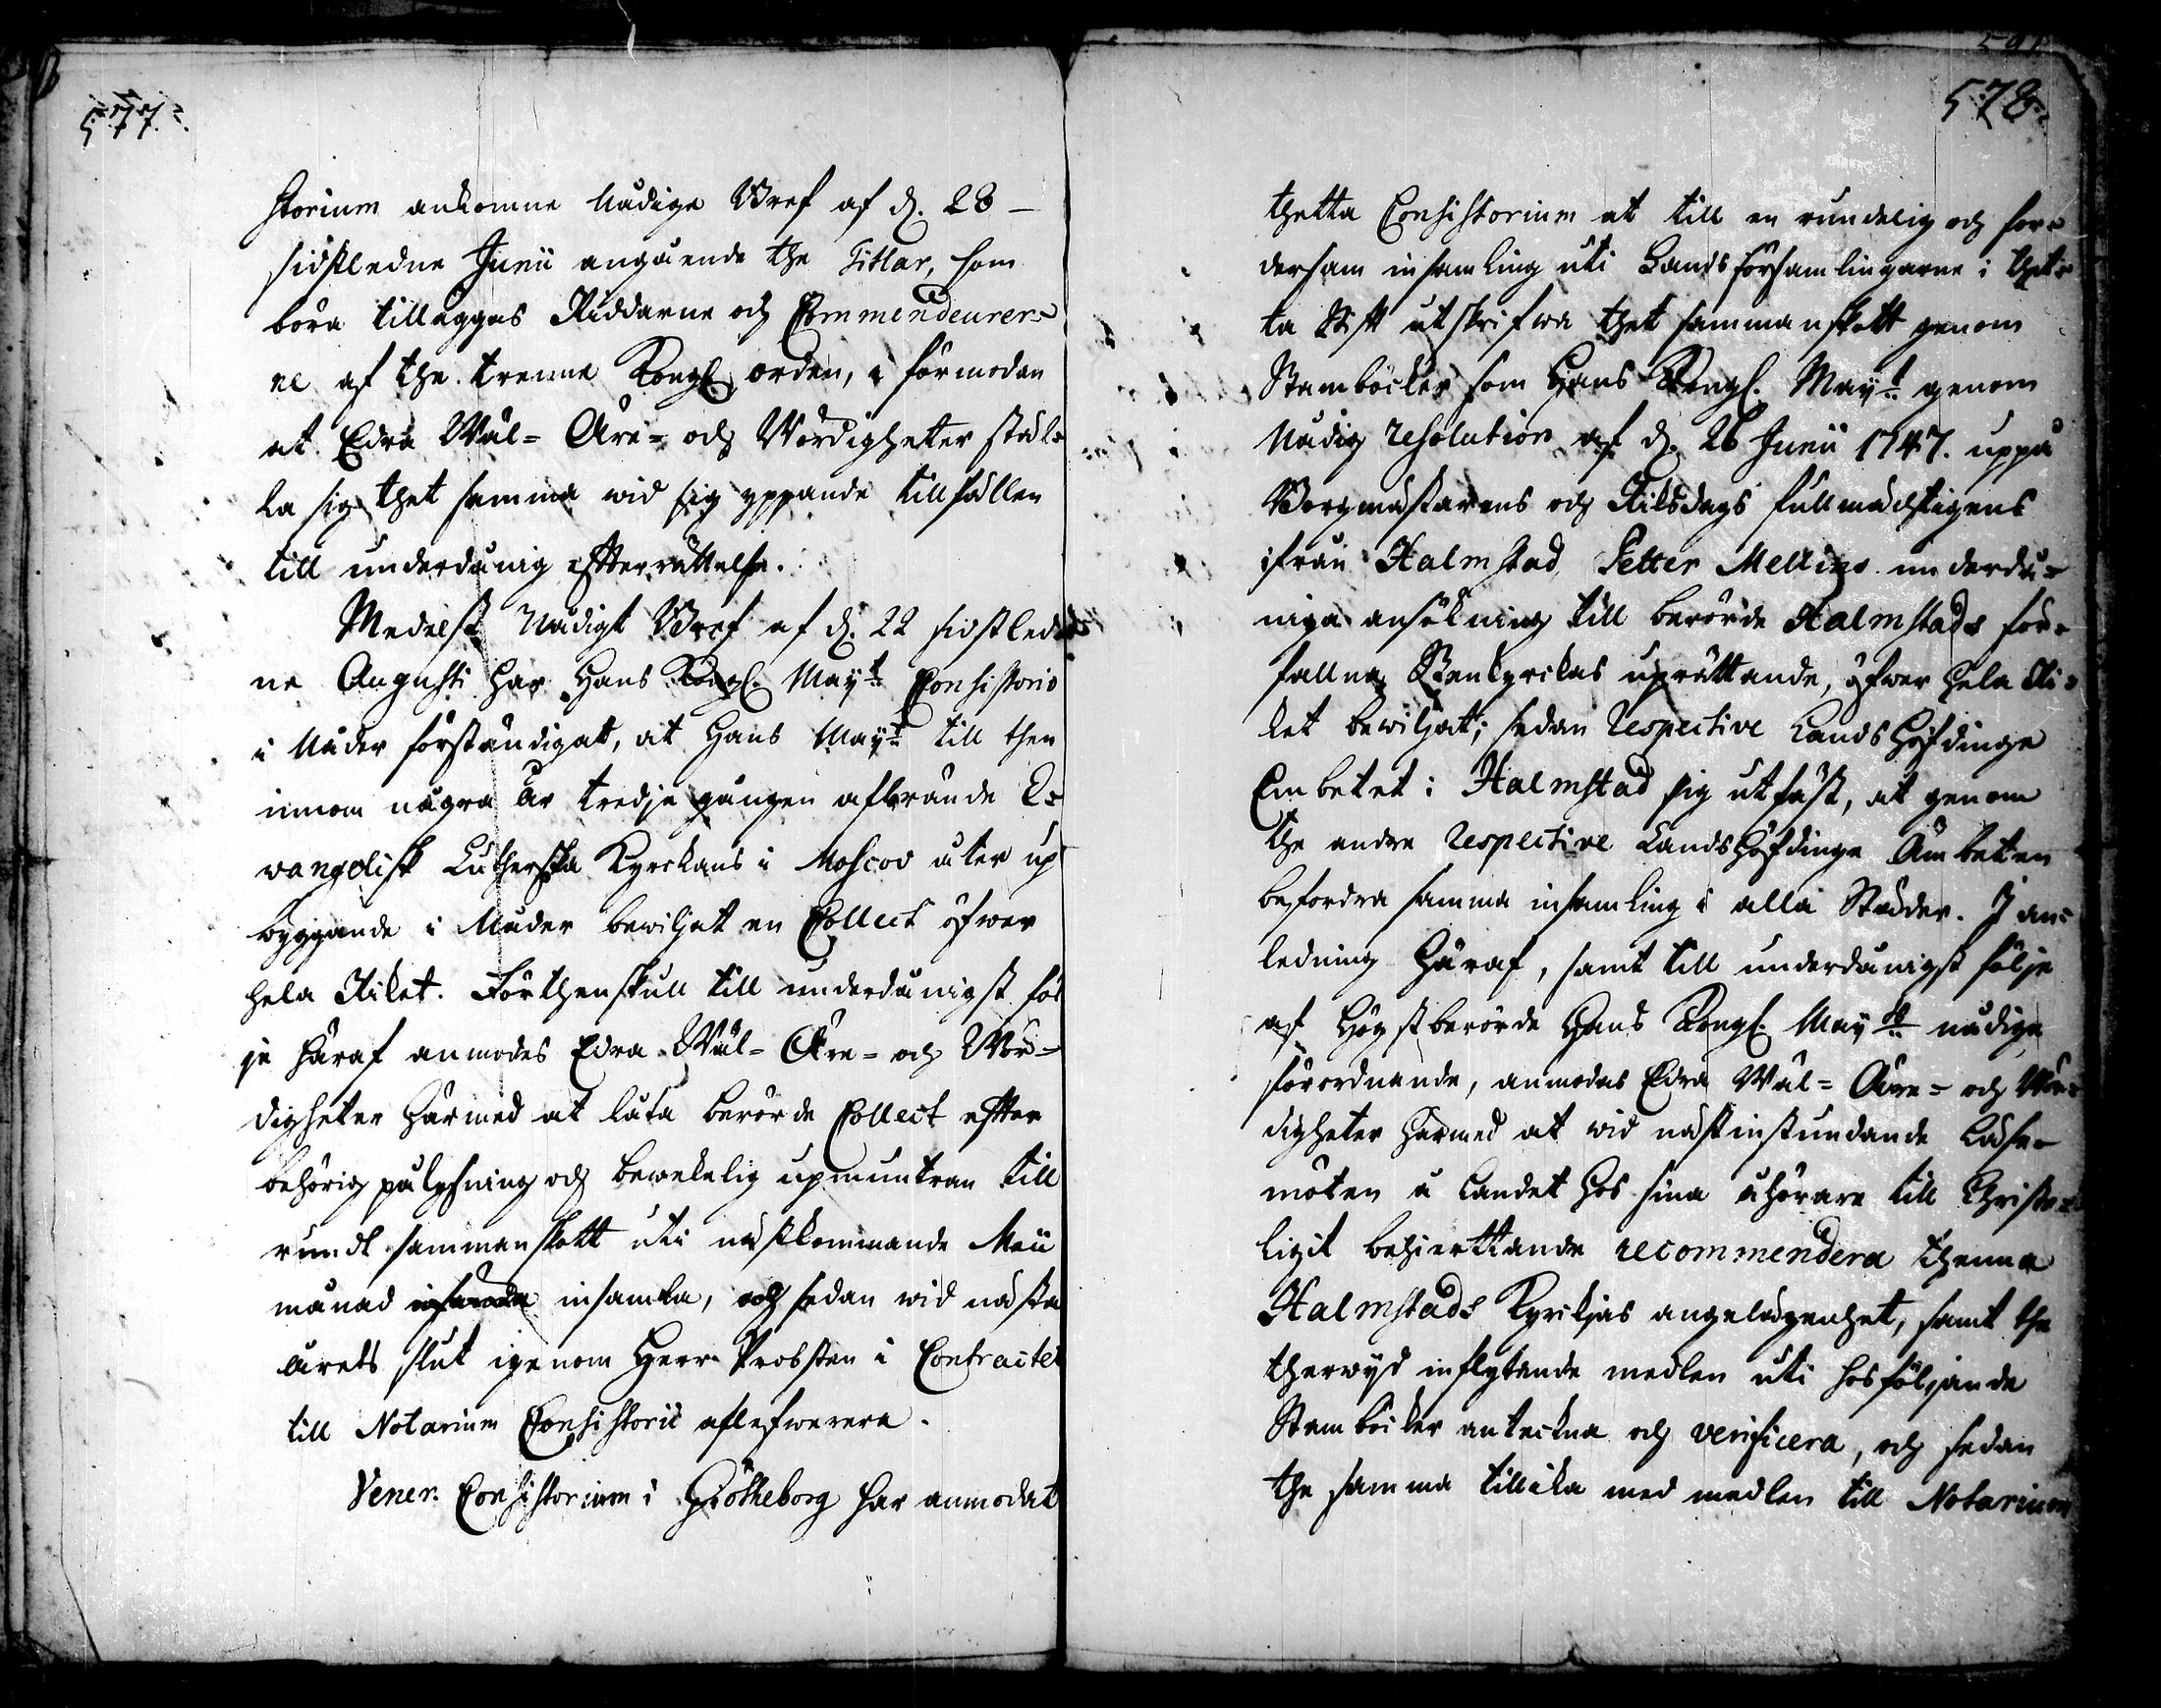 577.
storium ankomne Nådige Bref af d. 28
sidstledne Junii angående the Titlar, som
böra tilläggas Riddarne och Commendeurer=
ne af the trenne Kongl. orden, i förmodan
at Edra Wäl= Äre= och Wördigheter stäl=
la sig thet samma wid sig yppande tillfällen
till underdånig efterrättelse.
Medelst Nådigt Bref af d. 22 sidstled=
ne Augusti har Hans Kongl. Mayt Consistorio
i Nåder förständigat, at Hans Mayt till then
innom några år tredje gången afbrände E=
vangelisk Lutherska Kyrckans i Moscov åter up
byggande i Nåder bewiljat en Collect öfwer
hela Riket. Förthenskull till underdånigst föl
je häraf anmodes Edra Wäl= Äre= och Wör=
digheter härmed at låta berörde Collect efter
behörig pålysning och bewekelig upmuntran till
rundt sammanskott uti nästkommande Maii
månad insamla, och sedan wid nästa
årets slut igenom Herr Probsten i Contractet
till Notarium Consistorii aflefwerera.
Vener. Consistorium i Giötheborg har anmodat
578.
thetta Consistorium at till en rundelig och for=
dersam insamling uti Landsförsamlingarne i thet=
ta Stift utskrifwa thet sammanskott genom
Stamböcker som Hans Kongl. Mayt genom
Nådig resolution af d. 26 Junii 1747. uppå
Borgmästarens och Riksdags fullmächtigens
ifrån Halmstad, Petter Mellins underdå=
niga ansökning till berörde Halmstads för=
fallna Stenkyrckas uprättande, öfwer hela Ri=
ket bewiljat; sedan respective Landshöfdinge
Embetet i Halmstad sig utfäst, at genom
the andre respective Landshöfdinge Ämbeten
befordra samma insamling i alla Städer. I an=
ledning häraf, samt till underdånigst följe
af Högstberörde Hans Kongl. Mayts nådige
förordnande, anmodas Edra Wäl= Äre= och Wör=
digheter härmed at wid nästinstundande Läse=
möten å Landet hos sina åhörare till Christe=
ligit behierttande recommendera thenna
Halmstads Kyrckjas angelägenhet, samt the
therwid inflytande medlen uti hosföljande
Stamböcker anteckna och verificera, och sedan
the samma tillika med medlen till Notarium